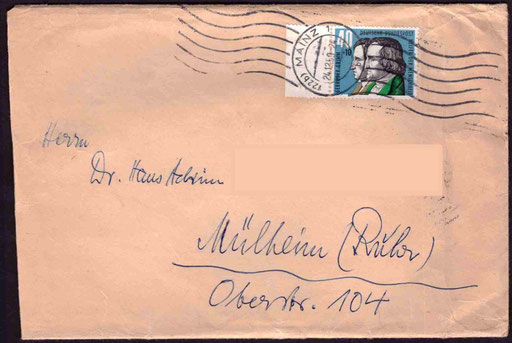 (22b) MAINZ 1
24.12.59
40
+10
DEUTSCHE BUNDESPOST
Herrn
Dr. Hans Achim
Mülheim (Ruhr)
Oberstr. 104